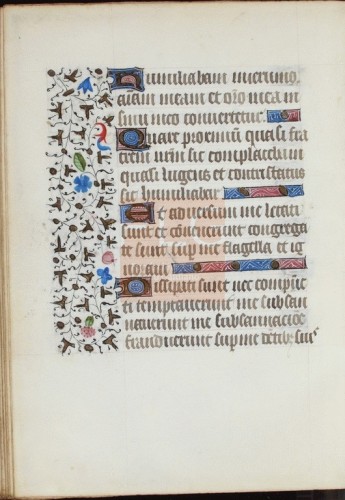 Humiliabam in ieiunio
aīam meam et orō mea in
sinu meo convertetur.
Quasi proximū quasi fra
trem nrm̄ sic complacebam
quasi lugens et contristatus
sic humiliabar
Et adversum me letati
sunt et convenerunt congrega
ta sunt super me flagella et ig
noravi
Dissipati sunt nec compūc
ti temptaverunt me subsan
naverunt me subsannacioē
frenduerunt super me dētib; suis